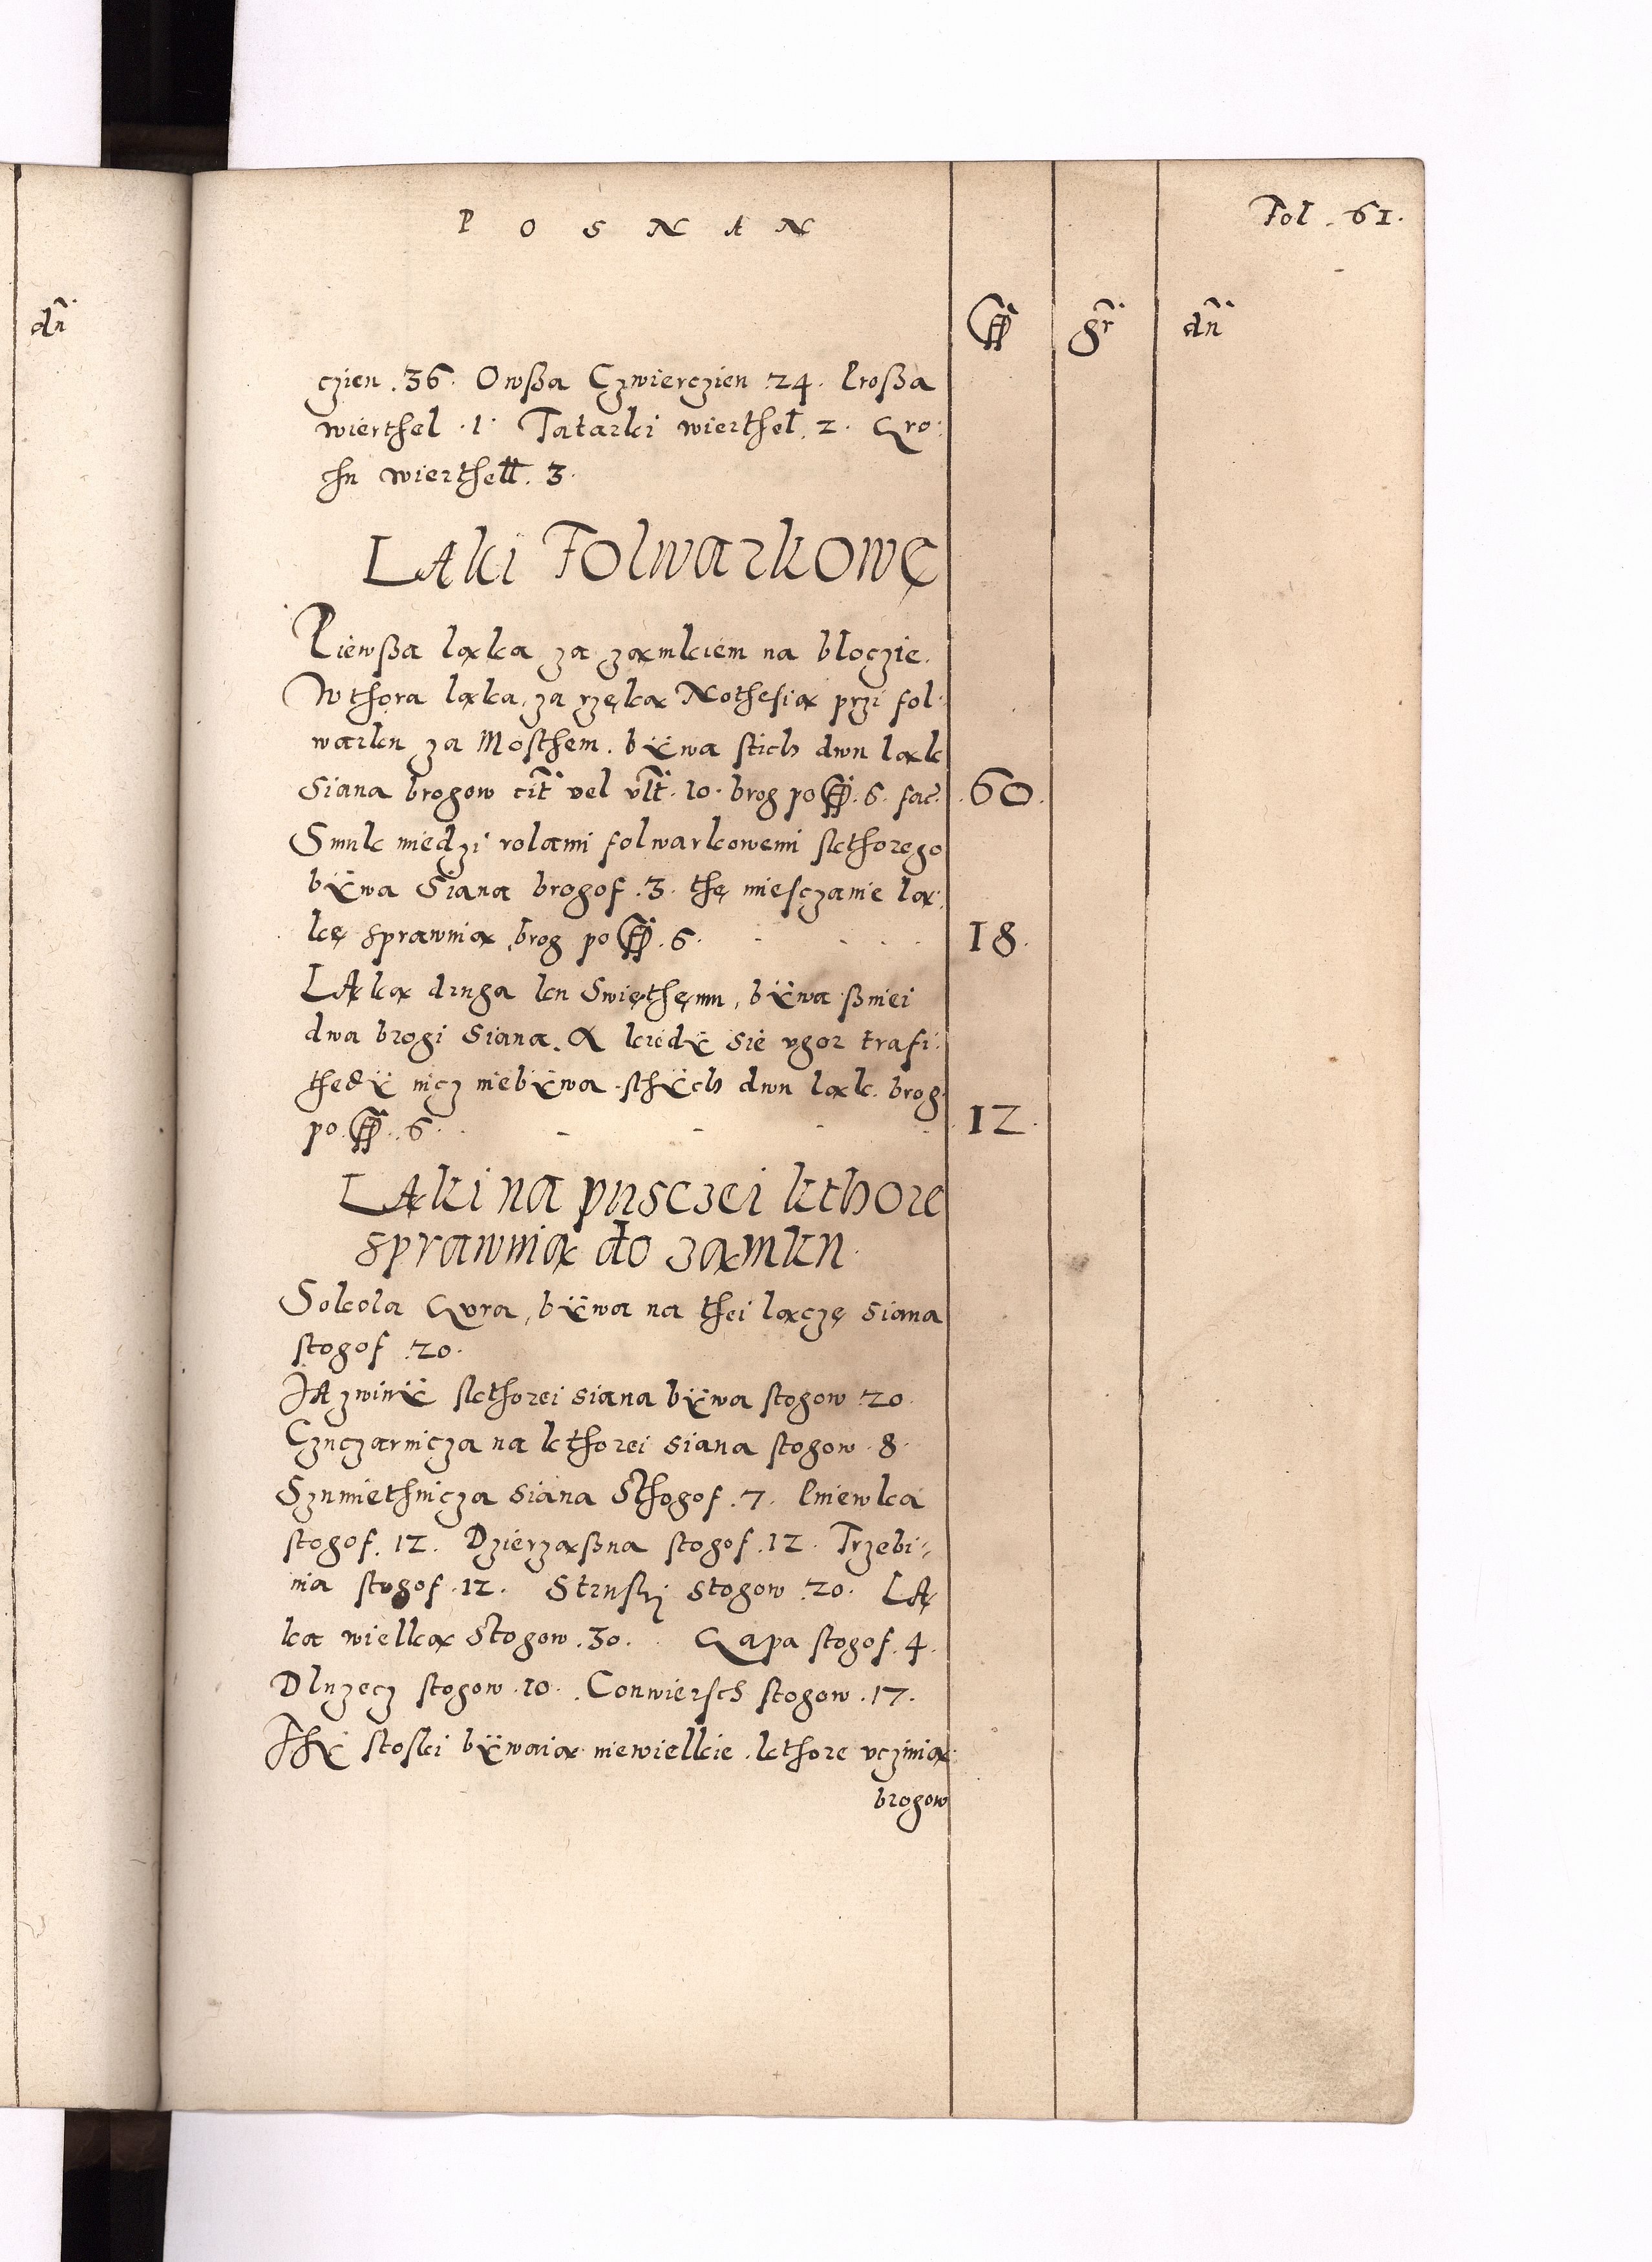 P O S N A N
Fol. 61.
dñ
gr dñ
czien .36. Owßa Czwierczien .24. Proßa
wierthel .1. Tatarki wierthel .2. Gro:
chu wierthell .3.
LAki Folwarkowę
Pierwßa ląka za zamkiem na bloczie.
Wthora ląka, za rzęką Nothesią przi fol:
warku za Mosthem. bÿwa stich dwu ląk
Siana brogow cit vel vlt .10. brog po .6. fac. .60.
Smuk miedzi rolami folwarkowemi skthorego
bÿwa Siana brogof .3. thę miesczanie lą:
kę sprawuią brog po .6. 18.
LĄka druga ku Swięthęmu, bÿwa ßniei
dwa brogi siana. A kiedÿ sie vgor trafi:
thedÿ nicz niebÿwa. sthÿch dwu ląk. brog
po .6. 12.
LĄki na pusczei kthore
sprawuią do zamku.
Sokola Gora, bÿwa na thei lączę siana
stogof .20.
JAzwinÿ skthorei siana bÿwa stogow .20.
Czuczarnicza na kthorei siana stogow .8.
Szumiethnicza siana Sthogof .7. Pniewka
stogof .12. Dzierząßna stogof .12. Trzebi:
nia stogof .12. Struski stogow .20. LĄ
ka wielką Stogow .30. Gapa stogof .4.
Dluzecz stogow .10. Conwiersch stogow .17.
Thÿ stoski bÿwaią niewielkie. kthore vczinią
brogow